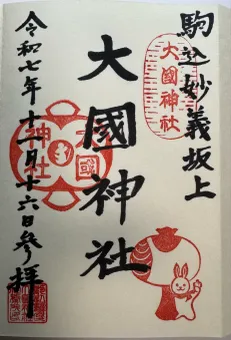 駒込妙義坂上
大國神社
大國神社
令和七年十一月十六日参拝